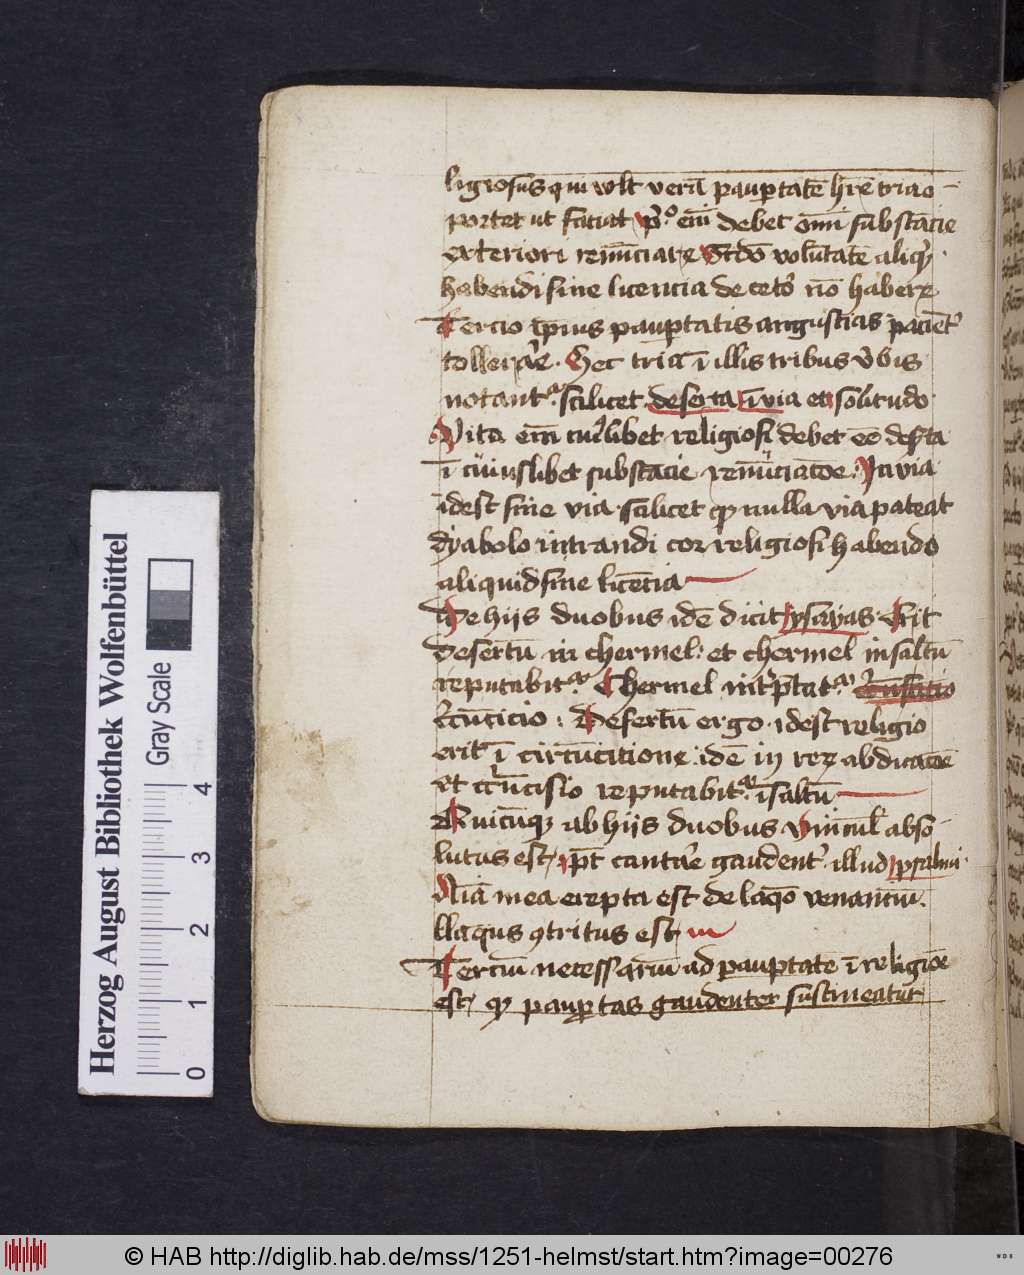 ligiosus qui wlt verā paup̱tatē hr̄e tria o-
portet ut faciat p̊º em̄ debet om̄i substācie
exteriori renūciare Scd̄o volūtatē aliqͥ
habendi sine licencia de ceto᷒ nō habere
Tercio ip̄ius paup̱tatis angustias pacient᷒
tollerar̄e. Hec tria ī illis tribus v᷒bis
notantᷣ scilicet deserta īvia et solitudo
Vita em̄ cui᷒libet religiosi debet eē des᷒ta
ī cuiuslibet substācie renūciatōe. In via
idest sine via scilicet qͥ nulla via pateat
dyabolo intrandi cor religiosi habendo
aliquid sine licētia
De hijs duobus idē dicit ysayas Erit
desertū in chermel: et chermel in saltū
reputabitᷣ Chermel int᷒p̄tatᷣ
c᷒cūcicio: Desertū ergo idest religio
erit ī circūcitione idē in reꝝ abdicatōe
Et c᷒cūcisio reputabitᷣ ī saltū
Quicūqꝫ ab hijs duobus vinculꝭ abso-
lutus est, p̄t cantar̄e gaudent᷒ illud psalmi
Aīa mea erepta est de laq̄o venantiū.
llaqus ꝯtritus est
Terciū necessariū ad paup̱tate ī religiōe
est, qͥ paup̱tas gaudenter sustineatur
Herzog August Bibliothek Wolfenbüttel
Gray Scale
0 1 2 3 4
© HAB http://diglib.hab.de/mss/1251-helmst/start.htm?image=00276